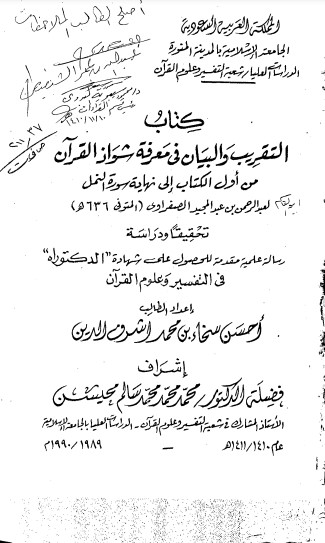 المملكة العربية السعودية
الجامعة الإسلامية بالمدينة المنورة
الدراسات العليا - شعبة التفسير وعلوم القرآن
أصلح الطالب الملاحظات
كتاب
التقريب والبيان في معرفة شواذ القرآن
من أول الكتاب إلى نهاية سورة النمل
لعبد الرحمن بن عبد المجيد الصفراوي (المتوفى ٦٣٦ هـ)
تحقيقًا ودراسة
رسالة علمية مقدمة للحصول على شهادة "الدكتوراه"
في التفسير وعلوم القرآن
إعداد الطالب
أحسن سخاء بن محمد أشرف الدين
إشراف
فضيلة الدكتور/ محمد محمد محمد سالم محيسن
الأستاذ المشارك في شعبة التفسير وعلوم القرآن - الدراسات العليا بالجامعة الإسلامية
عام ١٤١٠/١٤١١هـ - ١٩٨٩/١٩٩٠م